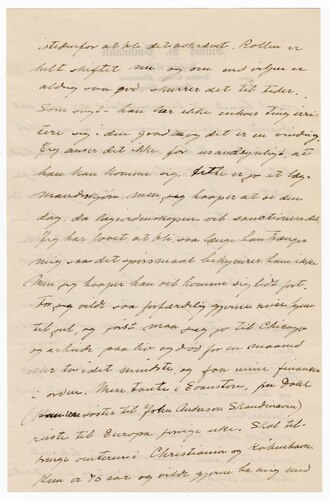 istedenfor at bli det ... Rollen er
helt skiftet nu og om end viljen er
aldrig saa god, skurrer det til tider.
Som sagt han lar ikke enhver ting irri-
tere sig i den grad ... og det er en vinding.
Jeg anser det ikke for usandsynligt, at
han kan komme sig. ... er jo at læg-
mandsskjøn, men jeg haaper at se den
dag, da lægevidenskapen vil sanctionere det.
Jeg har lovet at bli saa længe han trænger
mig saa det spørsmaal bekymrer ham ikke
Men jeg haaper han vil komme sig lidt fort.
for jeg vilde saa forfærdelig gjerne reise hjem
til jul, og først maa jeg jo til Chicago
og arbeide paa liv og død for en maaned
eller to i det mindste, og faa mine finanser
i orden. Min tante i Evanston, fru Dahl
( ... søster til John Anderson Skandinaven)
reiste til Europa forrige uke. Skal til-
bringe vinteren i Christiania og Kjøbenhavn
Hun er 73 aar og vilde gjerne ha mig med